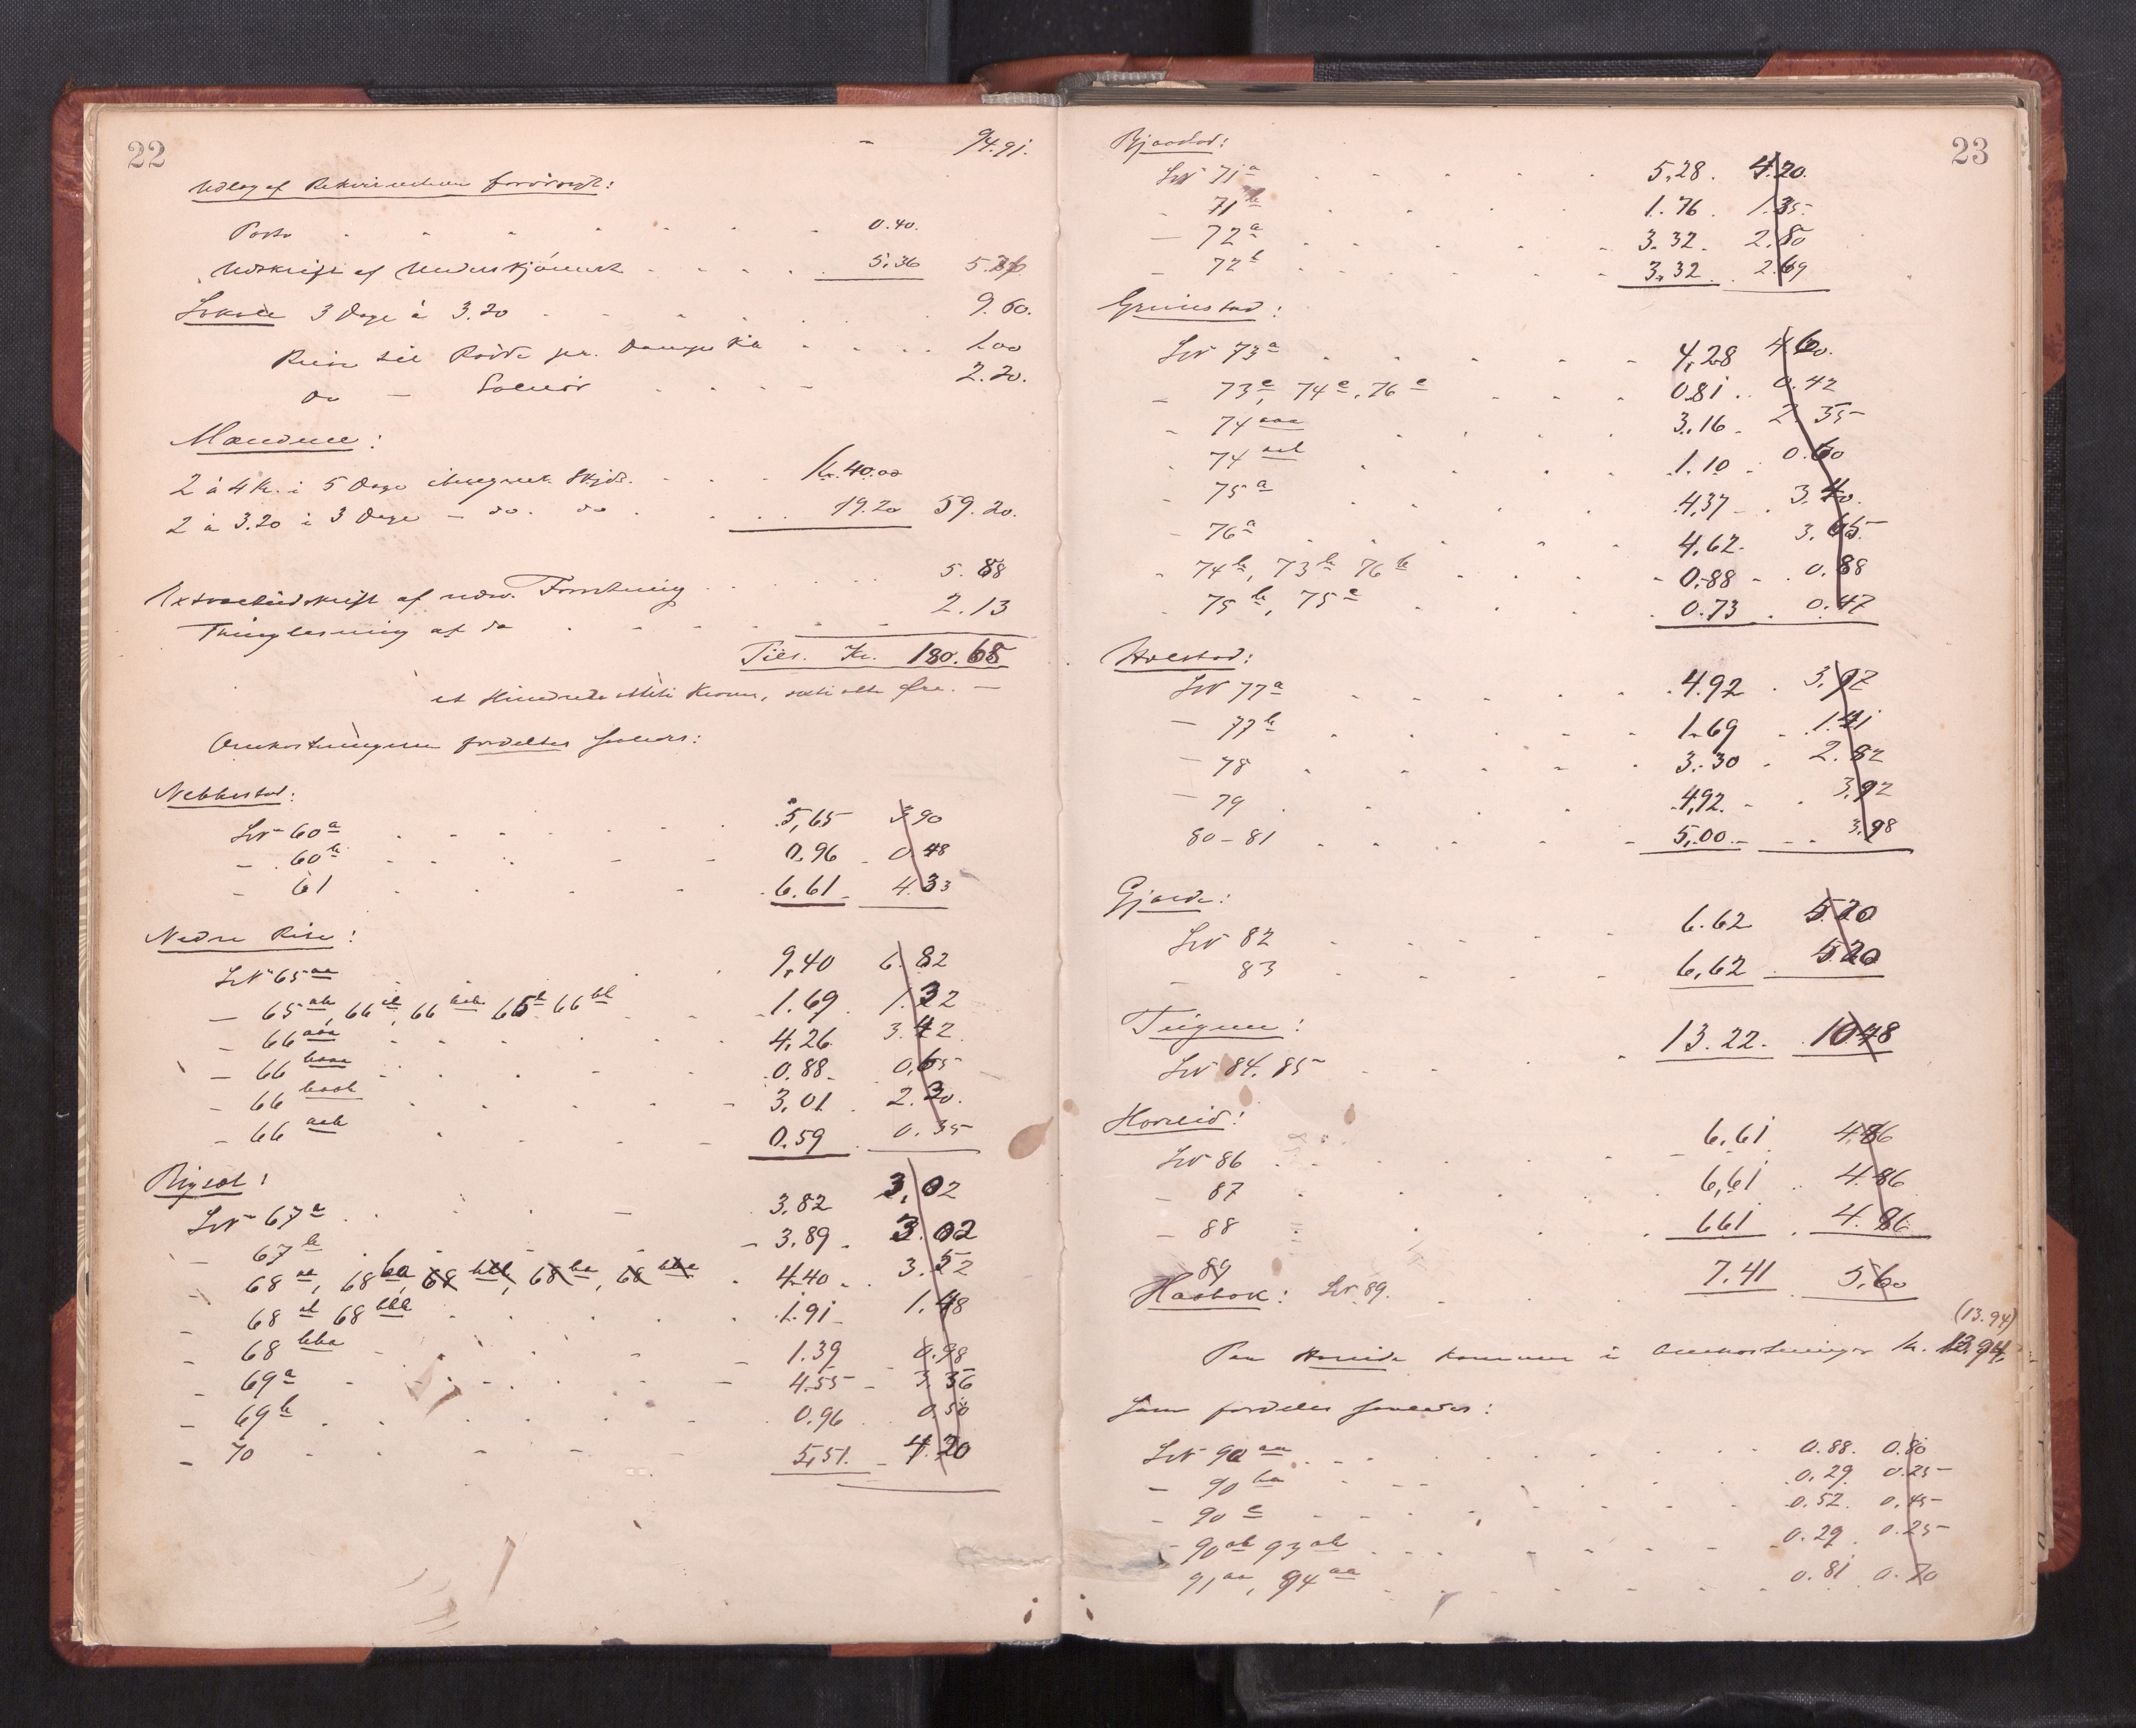 22
- 94.91.
Udlæg af Rekvirenterne forøvrigt:
Porto - - - - - - 0.40.
Udskrift af Underskjønnet - - - - 5.36 5.76
3 Dage à 3.20 - - - - 9.60.
Reise til pr. Dampskib - - - - 1.00
Do - - - - - 2.20.
Mændene:
2 à 4 Kr. i 5 Dage iberegnet Skyds. - - - Kr. 40.00
2 à 3.20 i 3 Dage - do. do - - - 19.20 59.20.
Extraktudskrift af Forretning - - - - 5.88
Thinglæsning af do - - - - - - 2.13
Tils. Kr. 180.68
et Hundrede otteti Kroner, otte Øre. -
Omkostningerne fordeltes saaledes:
Nebbestad:
LN 60 a - - - - - - 5,65 3.90
- 60 b - - - - - 0.96 - 0.48
- 61 - - - - 6.61 - 4.33
Nedre Rise:
LN 65 aa - - - 9,40 6.82
- 65 ab, 66 , 66 , 66 bb - - 1.69 1.32
- 66 aaa - - - - - - 4,26 3.42
- 66 baaa - - - - - 0.88 - 0,65
- 66 baab - - - - - 3,01 2.30.
- 66 aab - - - 0.59 0.35
LN 67 a - - - - 3.82 3,02
- 67 b - - - - - 3.89 3.02
- 68 aa, 68 ba, 68 bbb, 68 ba, 68 bba - 4.40 - 3.52
- 68 ab 68 bbb - - - - - 1.91 - 1.48
- 68 bba - - - - 1.39 0.98
- 69 a - - - - - - 4.55 - 3.36
- 69 b - - - - - - 0.96 0.50
- 70 - - - - - - 5,51. - 4.20
23
Bjaastad:
LN 71 a - - - - - 5,28. 4.20.
- 71 b - - - - - 1.76. 1.35.
- 72 a - - - - - 3.32. 2.80
- 72 b - - - - - 3.32. 2.69
Grimstad:
LN 73 a - - - - - 4,28 4.60.
- 73 c, 74 c, 76 c - - - 0.81. 0.42
- 74 aaa - - - - 3.16 - 2.35
- 74 aab - - - - 1.10 - 0.60
- 75 a - - - - 4,37 - 3.40.
- 76 a - - - - - 4,62. 3,65.
- 74 b, 73 b 76 b - - - 0.88 - 0.88
- 75 b, 75 c - - - - 0.73 0.47
Holstad:
LN 77 a - - - - - 4.92. 3.92
- 77 b - - - - - 1.69 - 1.41
- 78 - - - - - 3.30 - 2.82
- 79 - - - - - 4,92. - 3,92
80-81 - - - - - 5,00. - 3,98
Gjærde:
LN 82 - - - - 6.62 5.20
- 83 - - - - 6,62 5.20
LN 84. 85 - - - - 13.22. 10.48
LN 86 - - - - - 6,61 4.86
- 87 - - - - - 6,61 4.86
- 88 - - - - - 6.61 4.86
89
LN 89. - - - - 7.41 5,60
(13.94)
Paa kommer i Omkostninger Kr. 13.94.
Som fordeles saaledes:
LN 90 aa - - - - - - 0.88. 0.80
- 90 ba - - - - - 0.29 0.25
- 90 c - - - - - - 0.52. 0.45
- 90 ab 93 ab - - - - - 0.29 0.25
91 aa, 94 aa - - - - - 0.81 0.70